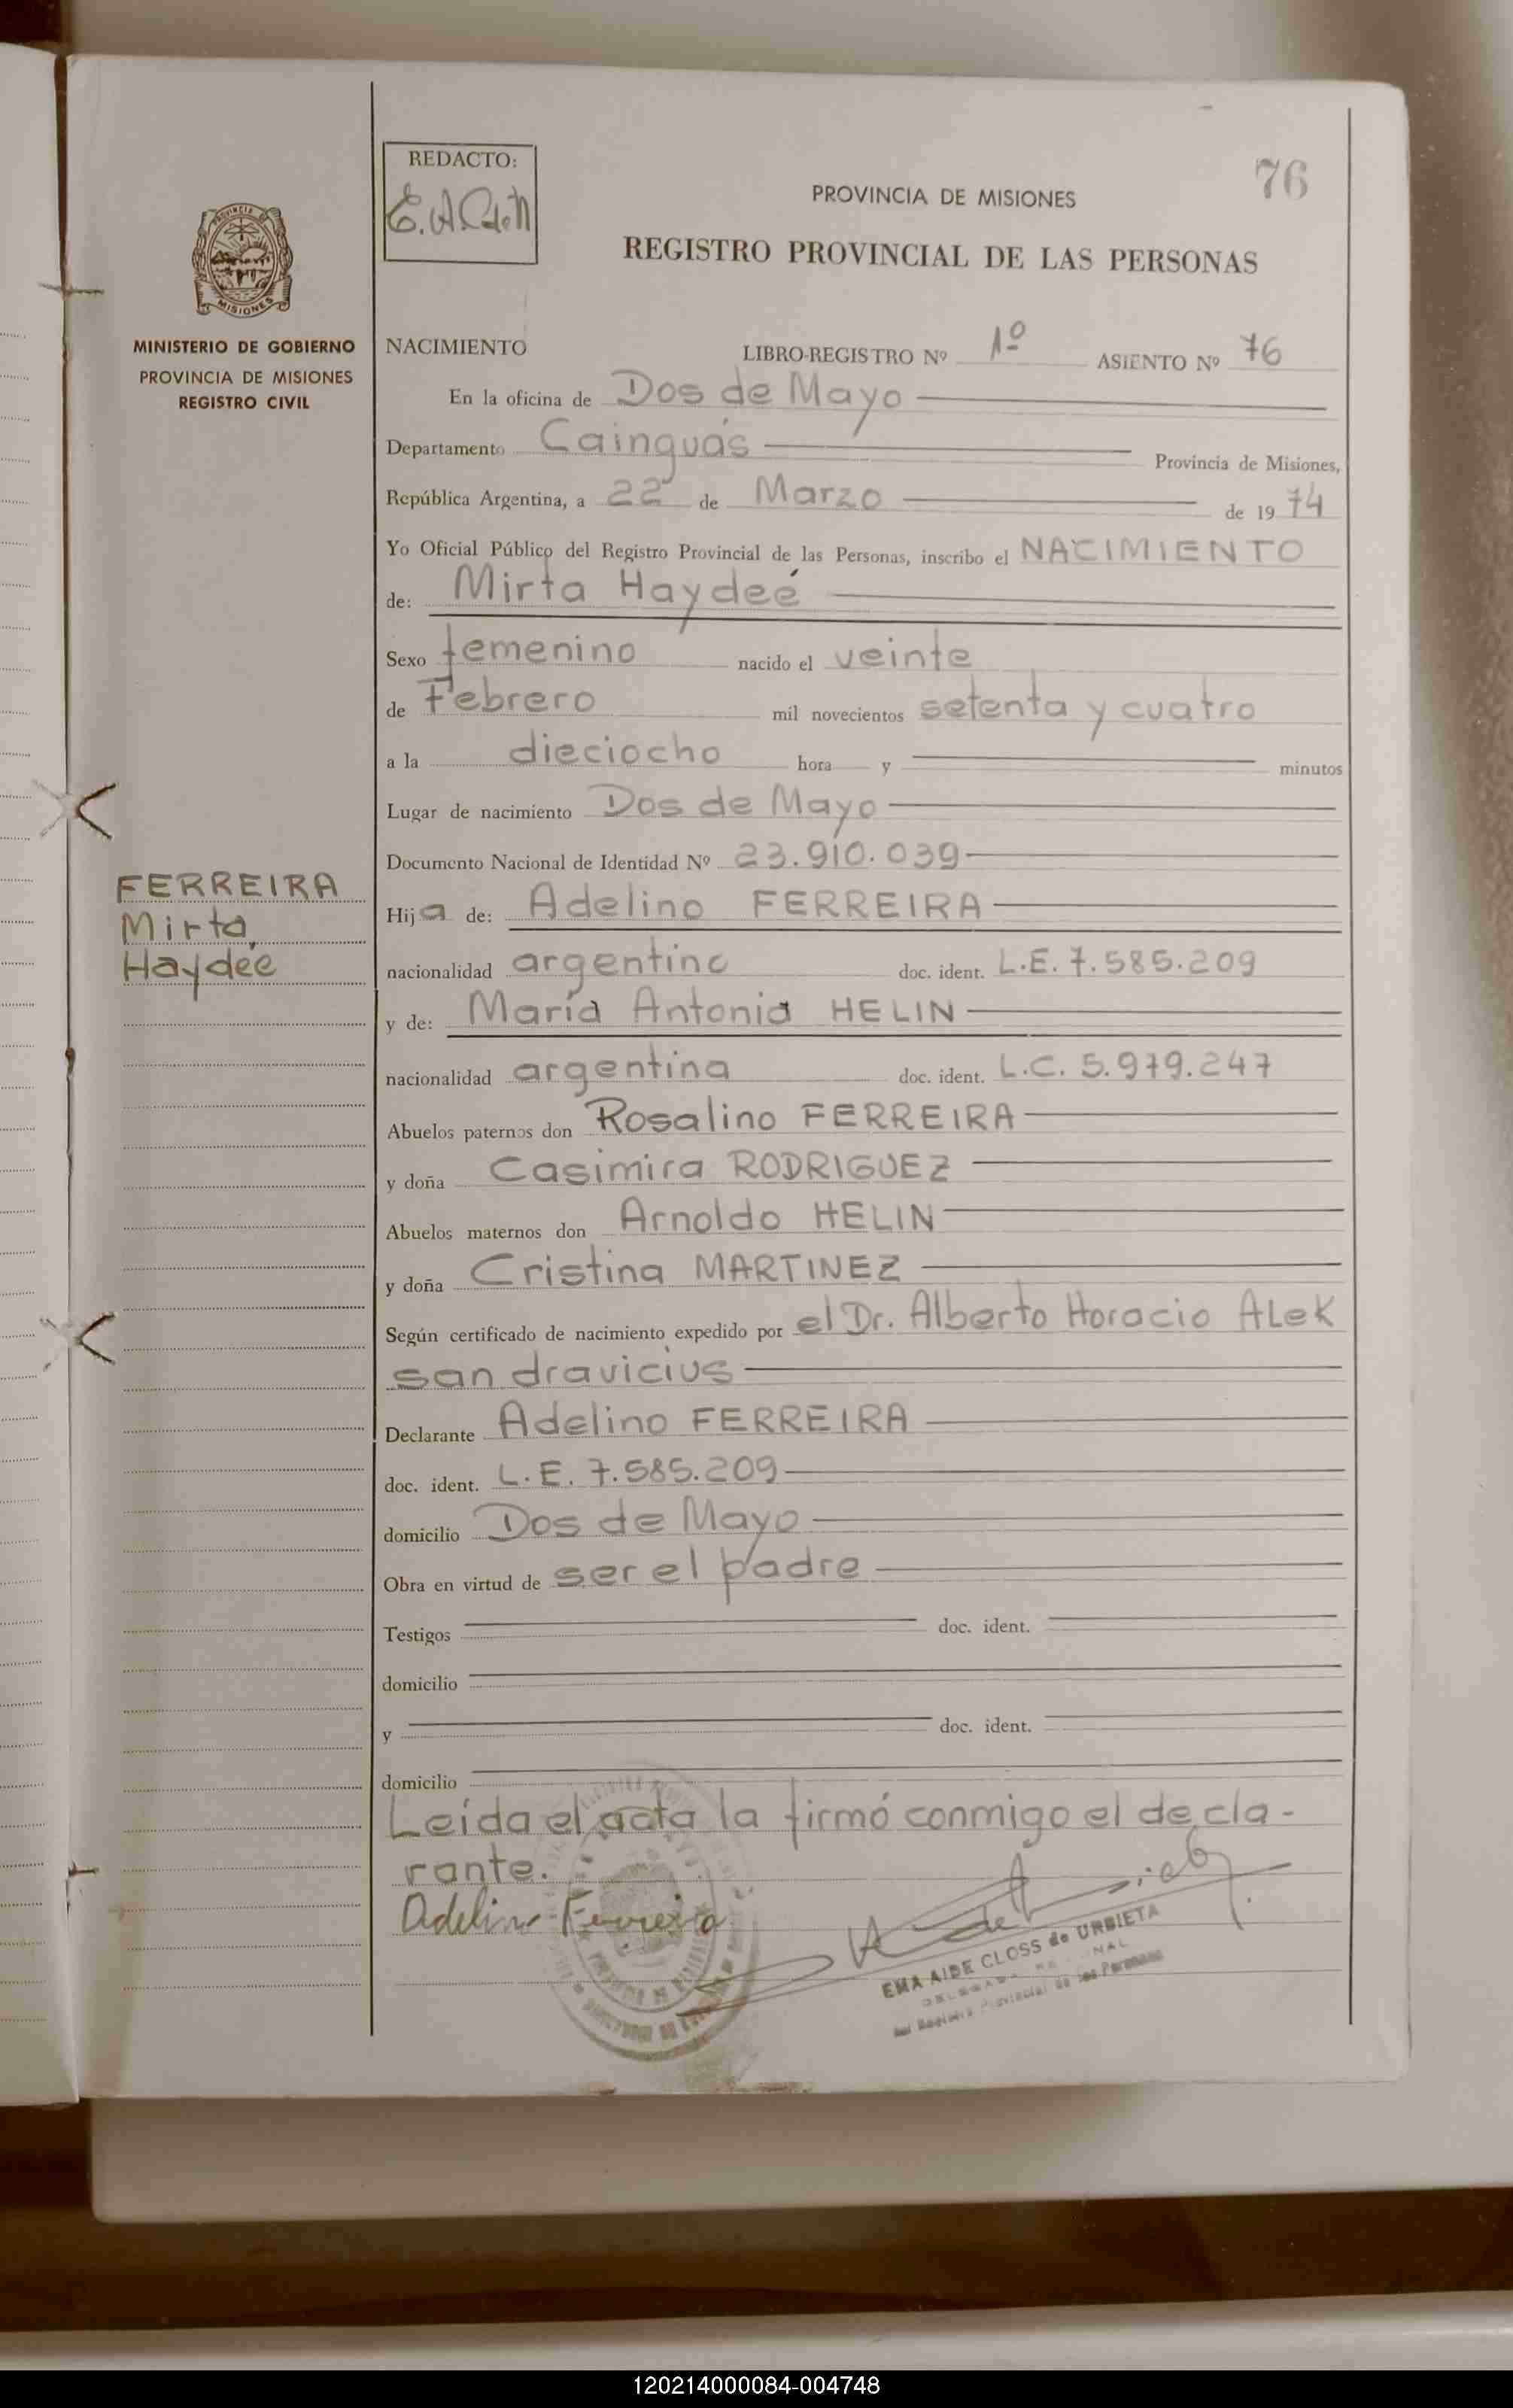 76
REDACTO:
PROVINCIA DE MISIONES
REGISTRO PROVINCIAL DE LAS PERSONAS
PROVINCIA
MISIONES
MINISTERIO DE GOBIERNO
PROVINCIA DE MISIONES
REGISTRO CIVIL
NACIMIENTO LIBRO-REGISTRO Nº 1º ASIENTO Nº 76
En la oficina de Dos de Mayo
Departamento Cainguás Provincia de Misiones,
República Argentina, a 22 de Marzo de 1974
Yo Oficial Público del Registro Provincial de las Personas, inscribo el NACIMIENTO
de: Mirta Haydeé
Sexo femenino nacido el veinte
de Febrero mil novecientos setenta y cuatro
a la dieciocho hora y minutos
Lugar de nacimiento Dos de Mayo
Documento Nacional de Identidad Nº 23.910.039
FERREIRA
Mirta
Haydeé
Hija de: Adelino FERREIRA
nacionalidad argentino doc. ident. L.E. 7.585.209
y de: María Antonia HELIN
nacionalidad argentina doc. ident. L.C. 5.979.247
Abuelos paternos don Rosalino FERREIRA
y doña Casimira RODRIGUEZ
Abuelos maternos don Arnoldo HELIN
y doña Cristina MARTINEZ
Según certificado de nacimiento expedido por el Dr. Alberto Horacio ALEK
sandravicius
Declarante Adelino FERREIRA
doc. ident. L.E. 7.585.209
domicilio Dos de Mayo
Obra en virtud de ser el padre
Testigos doc. ident.
domicilio
y doc. ident.
domicilio
Leída el acta la firmó conmigo el decla-
rante.
Adelino Ferreira
EMA AIDE CLOSS de URBIETA
Registro Provincial de las Personas
120214000084-004748